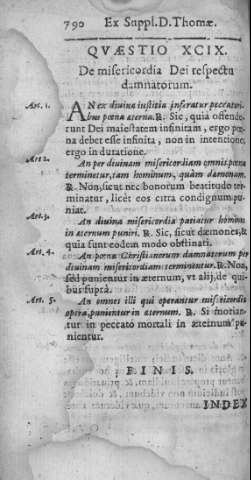 790 Ex Suppl. D. Thomæ.
QVÆSTIO XCIX.
De misericordia Dei respectu
damnatorum.
Art. 1. AN ex diuina iustitia inferatur peccatoribus
pœna æterna. R. Sic, quia offenderunt
Dei maiestatem infinitam, ergo pœna
debet esse infinita, non in intentione,
ergo in duratione.
Art 2. An per diuinam misericordiam omnis pœna
terminetur, tam hominum, quàm dæmonum.
R. Non, sicut nec bonorum beatitudo terminatur,
licét eos citra condignum puniat.
Art. 3. An diuina misericordia patiatur homines
in æternum puniri. R. Sic, sicut dæmones, &
quia sunt eodem modo obstinati.
Art. 4. An pœna Christianorum damnatorum per
diuinam misericordiam terminentur. R. Non,
sed punientur in æternum, vt alij, de quibus
suprà.
Art. 5. An omnes illi qui operantur misericordiæ
opera, punientur in æternum. R. Si moriantur
in peccato mortali in æternum punientur.
FINIS.
INDEX